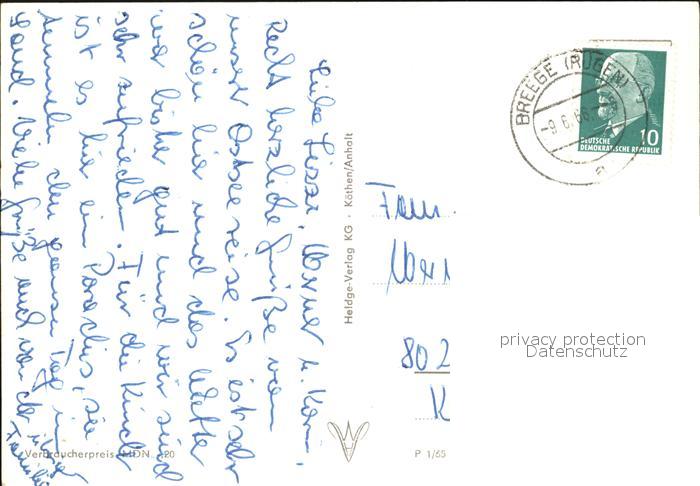 Liebe Lissi, Werner u. Karin,
Recht herzliche Grüße von
unser Ostseereise. Es ist sehr
schön hier und das Wetter
war bisher gut und wir sind
sehr zufrieden. Für die Kinder
ist es hier ein Paradies, sie
tummeln den ganzen Tag im
Sand. Viele Grüße auch von der übrigen
Familie
Heldge-Verlag KG · Köthen/Anhalt
BREEGE (RÜGEN)
-9.6.66.-
a
10
DEUTSCHE
DEMOKRATISCHE REPUBLIK
Fam.
Wern
802
K
privacy protection
Datenschutz
Verbraucherpreis MDN 20
P 1/65